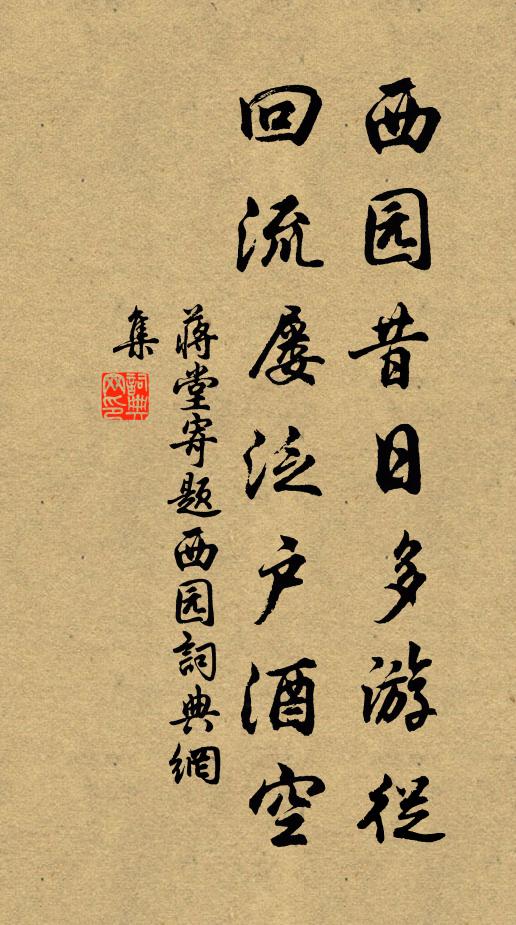 西园昔日多游従
回流屡泛户酒空
蒋堂寄题西园詞典網
集
詞典網印